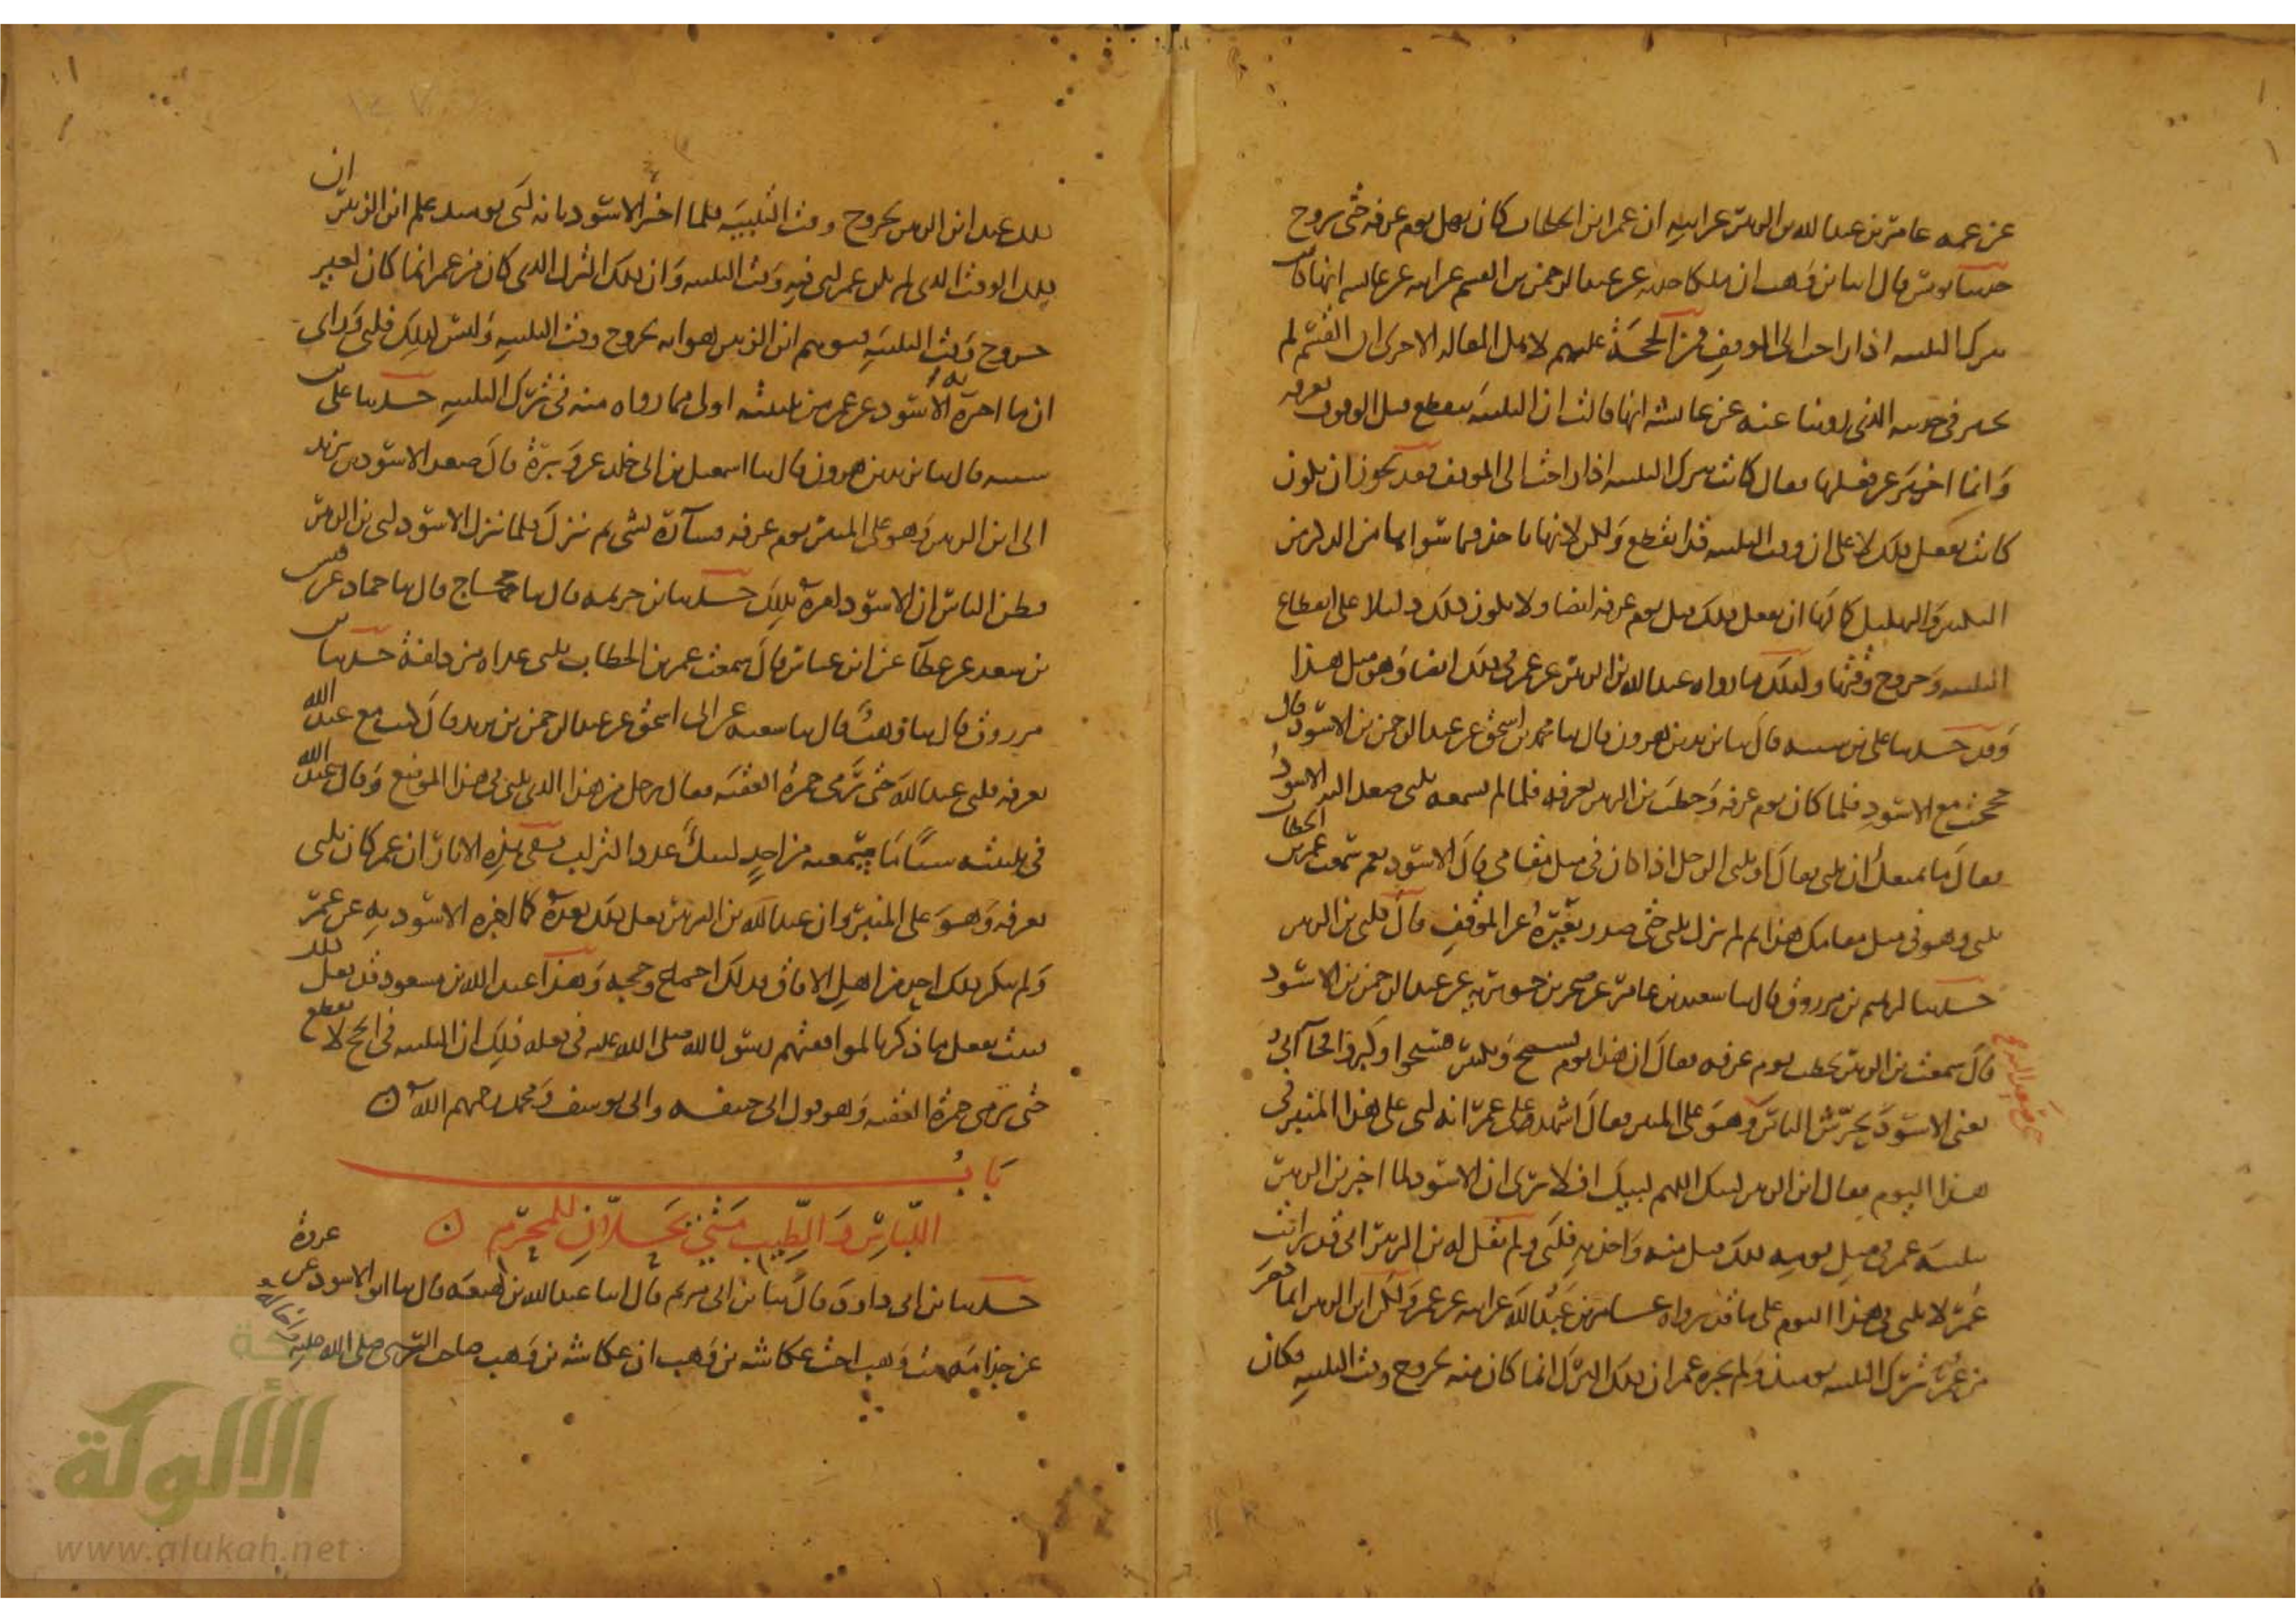 عن عمه عامر بن عبد الله بن الزبير عن ابيه ان عمر ابن الخطاب كان يهل يوم عرفه حتى يروح
حدثنا يونس قال انا ابن وهب ان ملكا حدثه عن عبد الرحمن بن القسم عن ابيه عن عائشه انها كانت
تترك التلبيه اذا راحت الى الموقف فمن الحجة عليهم لاهل المقاله الاخرى ان القسم لم
يخبر في حديثه الذي روينا عنه عن عائشه انها قالت ان التلبيه تنقطع قبل الوقوف بعرفه
وانما اخبر عن فعلها فقال كانت تترك التلبيه اذا راحت الى الموقف فقد يجوز ان يكون
كانت تفعل ذلك لا على ان وقت التلبيه قد انقطع ولكن لانها تاخذ فيما سواها من الذكر من
التكبير والتهليل كما لها ان تفعل ذلك قبل يوم عرفه ايضا ولا يكون ذلك دليلا على انقطاع
التلبيه وخروج وقتها وكذلك ما رواه عبد الله بن الزبير عن عمر في ذلك ايضا وهو مثل هذا
وقد حدثنا علي بن شيبه قال ثنا يزيد بن هرون قال ثنا محمد بن اسحق عن عبد الرحمن بن الاسود قال
حججت مع الاسود فلما كان يوم عرفه وخطب بن الزبير بعرفه فلما لم يسمعه يلبي صعد اليه الاسود
فقال ما يمنعك ان تلبي فقال او يلبي الرجل اذا كان في مثل مقامي قال الاسود نعم سمعت عمر بن الخطاب
يلبي وهو في مثل مقامك هذا ثم لم يزل يلبي حتى صدر بعيره عن الموقف قال فلبى بن الزبير
حدثنا ابرهيم بن مرزوق قال ثنا سعيد بن عامر عن صخر بن جويريه عن عبد الرحمن بن الاسود
قال سمعت بن الزبير يخطب يوم عرفه فقال ان هذا يوم تسبيح وتكبير فسبحوا وكبروا فجا ابي
يعني الاسود يحرش الناس وهو على المنبر فقال اشهد على عمر انه لبى على هذا المنبر في
هذا اليوم فقال ابن الزبير لبيك اللهم لبيك افلا ترى ان الاسود لما اخبر بن الزبير
بتلبيه عمر في مثل يومه ذلك قبل منه واخذ به فلبى ولم يقل له بن الزبير اني قد رايت
عمر لا يلبي في هذا اليوم على ما قد رواه عامر بن عبد الله عن ابيه عن عمر ولكن ابن الزبير انما حضر
من عمر ترك التلبيه يوميذ ولم يخبره عمر ان ذلك الترك انما كان منه لخروج وقت التلبيه فكان
ذلك عند ابن الزبير لخروج وقت التلبيه فلما اخبر الاسود بانه لبى يوميذ علم ابن الزبير ان
ذلك الوقت الذي لم يكن عمر لبى فيه وقت التلبيه وان ذلك الترك الذي كان من عمر انما كان لغير
خروج وقت التلبيه فتوهم ابن الزبير هو انه لخروج وقت التلبيه وليس كذلك فلبى وراى
ان ما اخبره به الاسود عن عمر من تلبيته اولى مما رواه منه في ترك التلبيه حدثنا علي بن
شيبه قال ثنا يزيد بن هرون قال ثنا اسمعيل بن ابي خلد عن وبرة قال صعد الاسود بن يزيد
الى ابن الزبير وهو على المنبر يوم عرفه فساره لشي ثم نزل فلما نزل الاسود لبى بن الزبير
فظن الناس ان الاسود امره بذلك حدثنا بن خزيمه قال ثنا حجاج قال ثنا حماد عن قيس
بن سعد عن عطا عن ابن عباس قال سمعت عمر بن الخطاب يلبي غداه مزدلفة حدثنا بن
مرزوق قال ثنا وهب قال ثنا شعبه عن ابي اسحق عن عبد الرحمن بن يزيد قال كنت مع عبد الله
بعرفه فلبى عبد الله حتى رمى جمرة العقبه فقال رجل من هذا الذي يلبي في هذا الموضع وقال عبد الله
في تلبيته شيا ما سمعته من احد لبيك عدد التراب ففي هذه الاثار ان عمر كان يلبي
بعرفه وهو على المنبر وان عبد الله بن الزبير فعل ذلك بعده كما اخبره الاسود به عن عمر
ولم ينكر ذلك احد من اهل الافاق فذلك اجماع وحجه وهذا عبد الله بن مسعود قد فعل ذلك
فثبت بفعل ما ذكرنا لموافقتهم رسول الله صلى الله عليه في فعله ذلك ان التلبيه في الحج لا تنقطع
حتى ترمى جمرة العقبه وهو قول ابي حنيفه وابي يوسف ومحمد رحمهم الله
باب
اللباس والطيب متى يحلان للمحرم
حدثنا بن ابي داود قال ثنا بن ابي مريم قال انا عبد الله بن لهيعه قال ثنا ابو الاسود عن عروة
عن جذامه بنت وهب اخت عكاشه بن وهب ان عكاشه بن وهب صاحب النبي صلى الله عليه
الألوكة
www.alukah.net